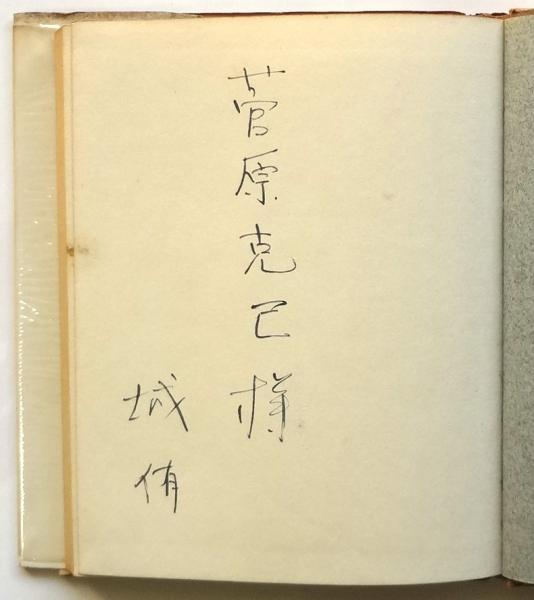 菅原克己様
城侑